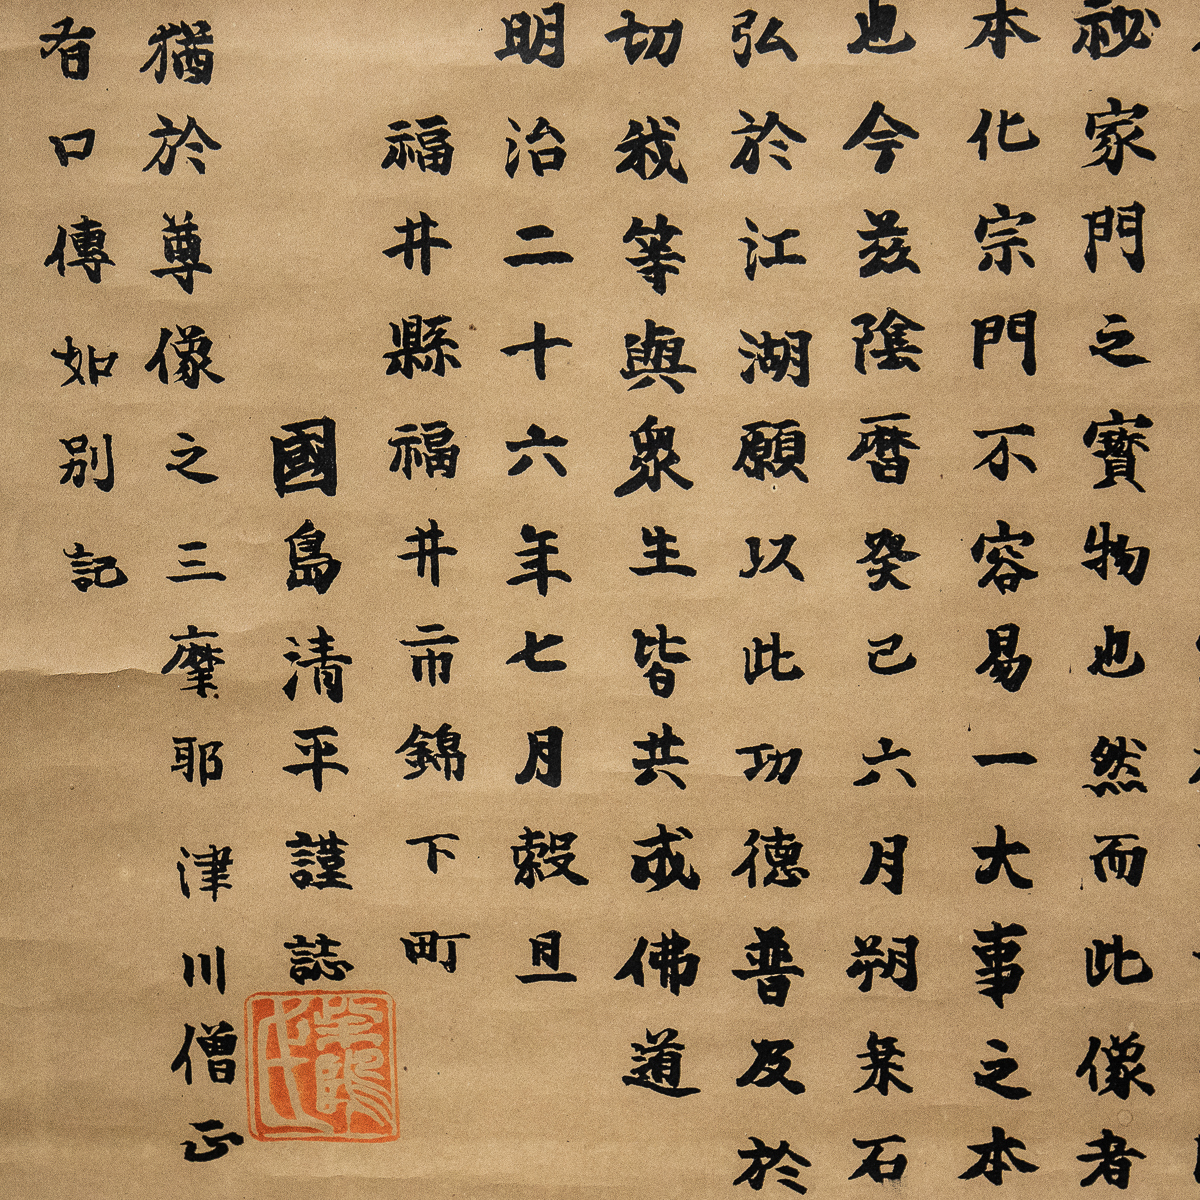 祕家門之寳物也然而此像者
本化宗門不容易一大事之本
也今茲陰暦癸己六月朔桒石
弘於江湖願以此功德普及於
切我等與衆生皆共成佛道
明治二十六年七月穀旦
福井縣福井市錦下町
國島清平謹誌
猶於尊像之三摩耶津川僧正
有口傳如別記